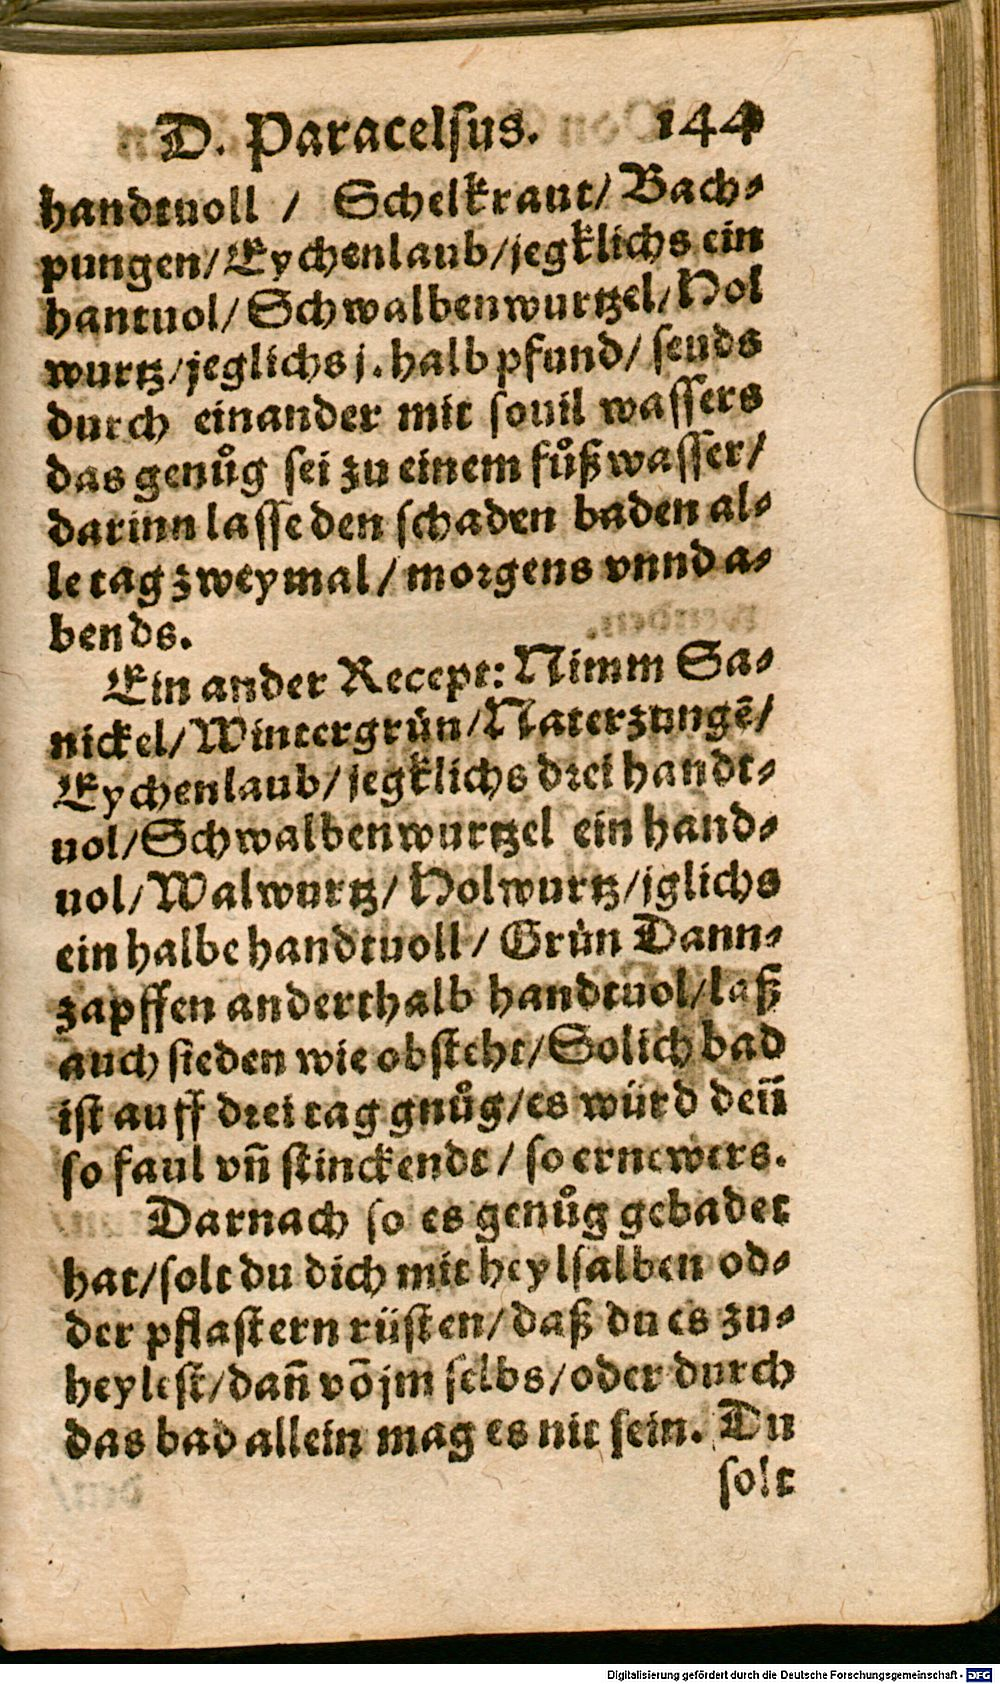 D. Paracelsus. 144
handtuoll / Schelkraut/ Bach⸗
pungen/ Eychenlaub/ jegklichs ein
hantuol/ Schwalbenwurtzel/ Hol
wurtz/ jeglichs j. halb pfund/ seuds
durch einander mit souil wassers
das genůg sei zu einem fůßwasser/
darinn lasse den schaden baden al⸗
le tag zweymal / morgens vnnd a⸗
bends.
Ein ander Recept: Nimm Sa⸗
nickel/ Wintergrün/ Naterzungē/
Eychenlaub/ jegklichs drei handt⸗
uol/ Schwalbenwurtzel ein hand⸗
uol/ Walwurtz/ Holwurtz/ jglichs
ein halbe handtuoll / Grün Dann⸗
zapffen anderthalb handtuol/ laß
auch sieden wie obsteht/ Solich bad
ist auff drei tag gnůg/ es würd deñ
so faul vñ stinckendt / so ernewers.
Darnach so es genůg gebadet
hat/ solt du dich mit heylsalben od⸗
der pflastern rüsten/ daß du es zu⸗
heylest/ dañ võ jm selbs/ oder durch
das bad allein mag es nit sein. Du
solt
Digitalisierung gefördert durch die Deutsche Forschungsgemeinschaft - DFG